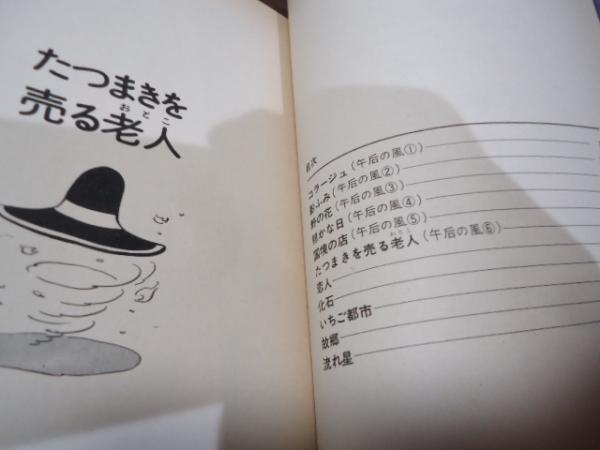 たつまきを
売る老人
おとこ
目次
コラージュ(午后の風①)
影ふみ(午后の風②)
野の花(午后の風③)
静かな日(午后の風④)
の店(午后の風⑤)
たつまきを売る老人(午后の風⑥)
おとこ
恋人
化石
いちご都市
故郷
流れ星